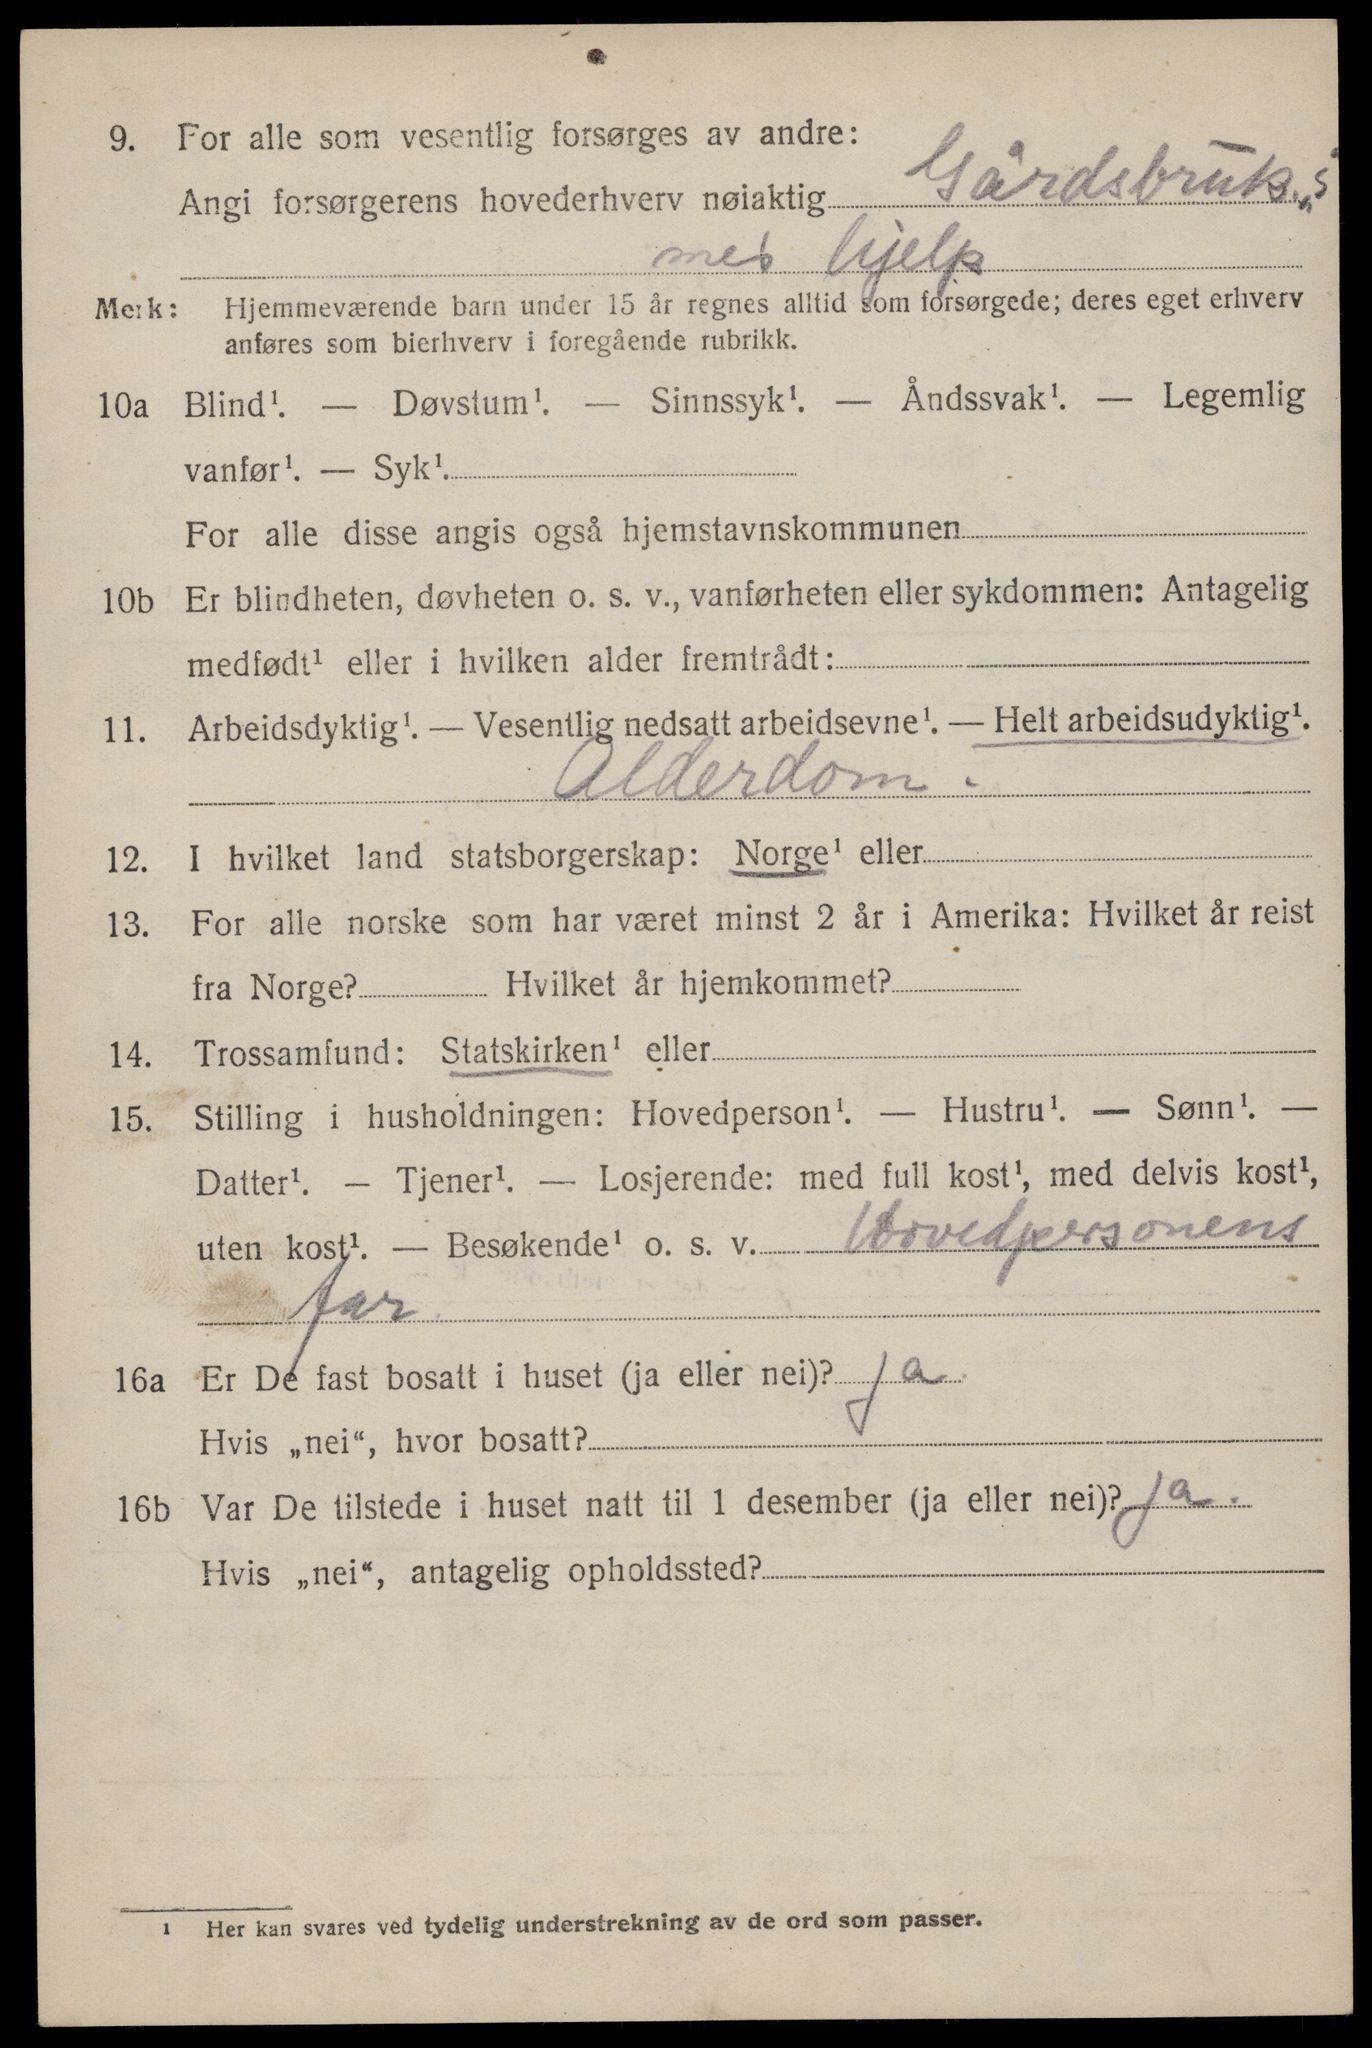 9. For alle som vesentlig forsørges av andre:
Angi forsørgerens hovederhverv nøiaktig Gårdsbruk
med hjelp
Merk: Hjemmeværende barn under 15 år regnes alltid som forsørgede; deres eget erhverv
anføres som bierhverv i foregående rubrikk.
10a Blind¹. — Døvstum¹. — Sinnssyk¹. — Åndssvak¹. — Legemlig
vanfør¹. — Syk¹.
For alle disse angis også hjemstavnskommunen
10b Er blindheten, døvheten o. s. v., vanførheten eller sykdommen: Antagelig
medfødt¹ eller i hvilken alder fremtrådt:
11. Arbeidsdyktig¹. — Vesentlig nedsatt arbeidsevne¹. — Helt arbeidsudyktig¹.
Alderdom.
12. I hvilket land statsborgerskap: Norge¹ eller
13. For alle norske som har været minst 2 år i Amerika: Hvilket år reist
fra Norge? Hvilket år hjemkommet?
14. Trossamfund: Statskirken¹ eller
15. Stilling i husholdningen: Hovedperson¹. — Hustru¹. — Sønn¹. —
Datter¹. — Tjener¹. — Losjerende: med full kost¹, med delvis kost¹,
uten kost¹. — Besøkende¹ o. s. v. Hovedpersonens
far.
16a Er De fast bosatt i huset (ja eller nei)? ja.
Hvis „nei“, hvor bosatt?
16b Var De tilstede i huset natt til 1 desember (ja eller nei)? ja.
Hvis „nei“, antagelig opholdssted?
1 Her kan svares ved tydelig understrekning av de ord som passer.